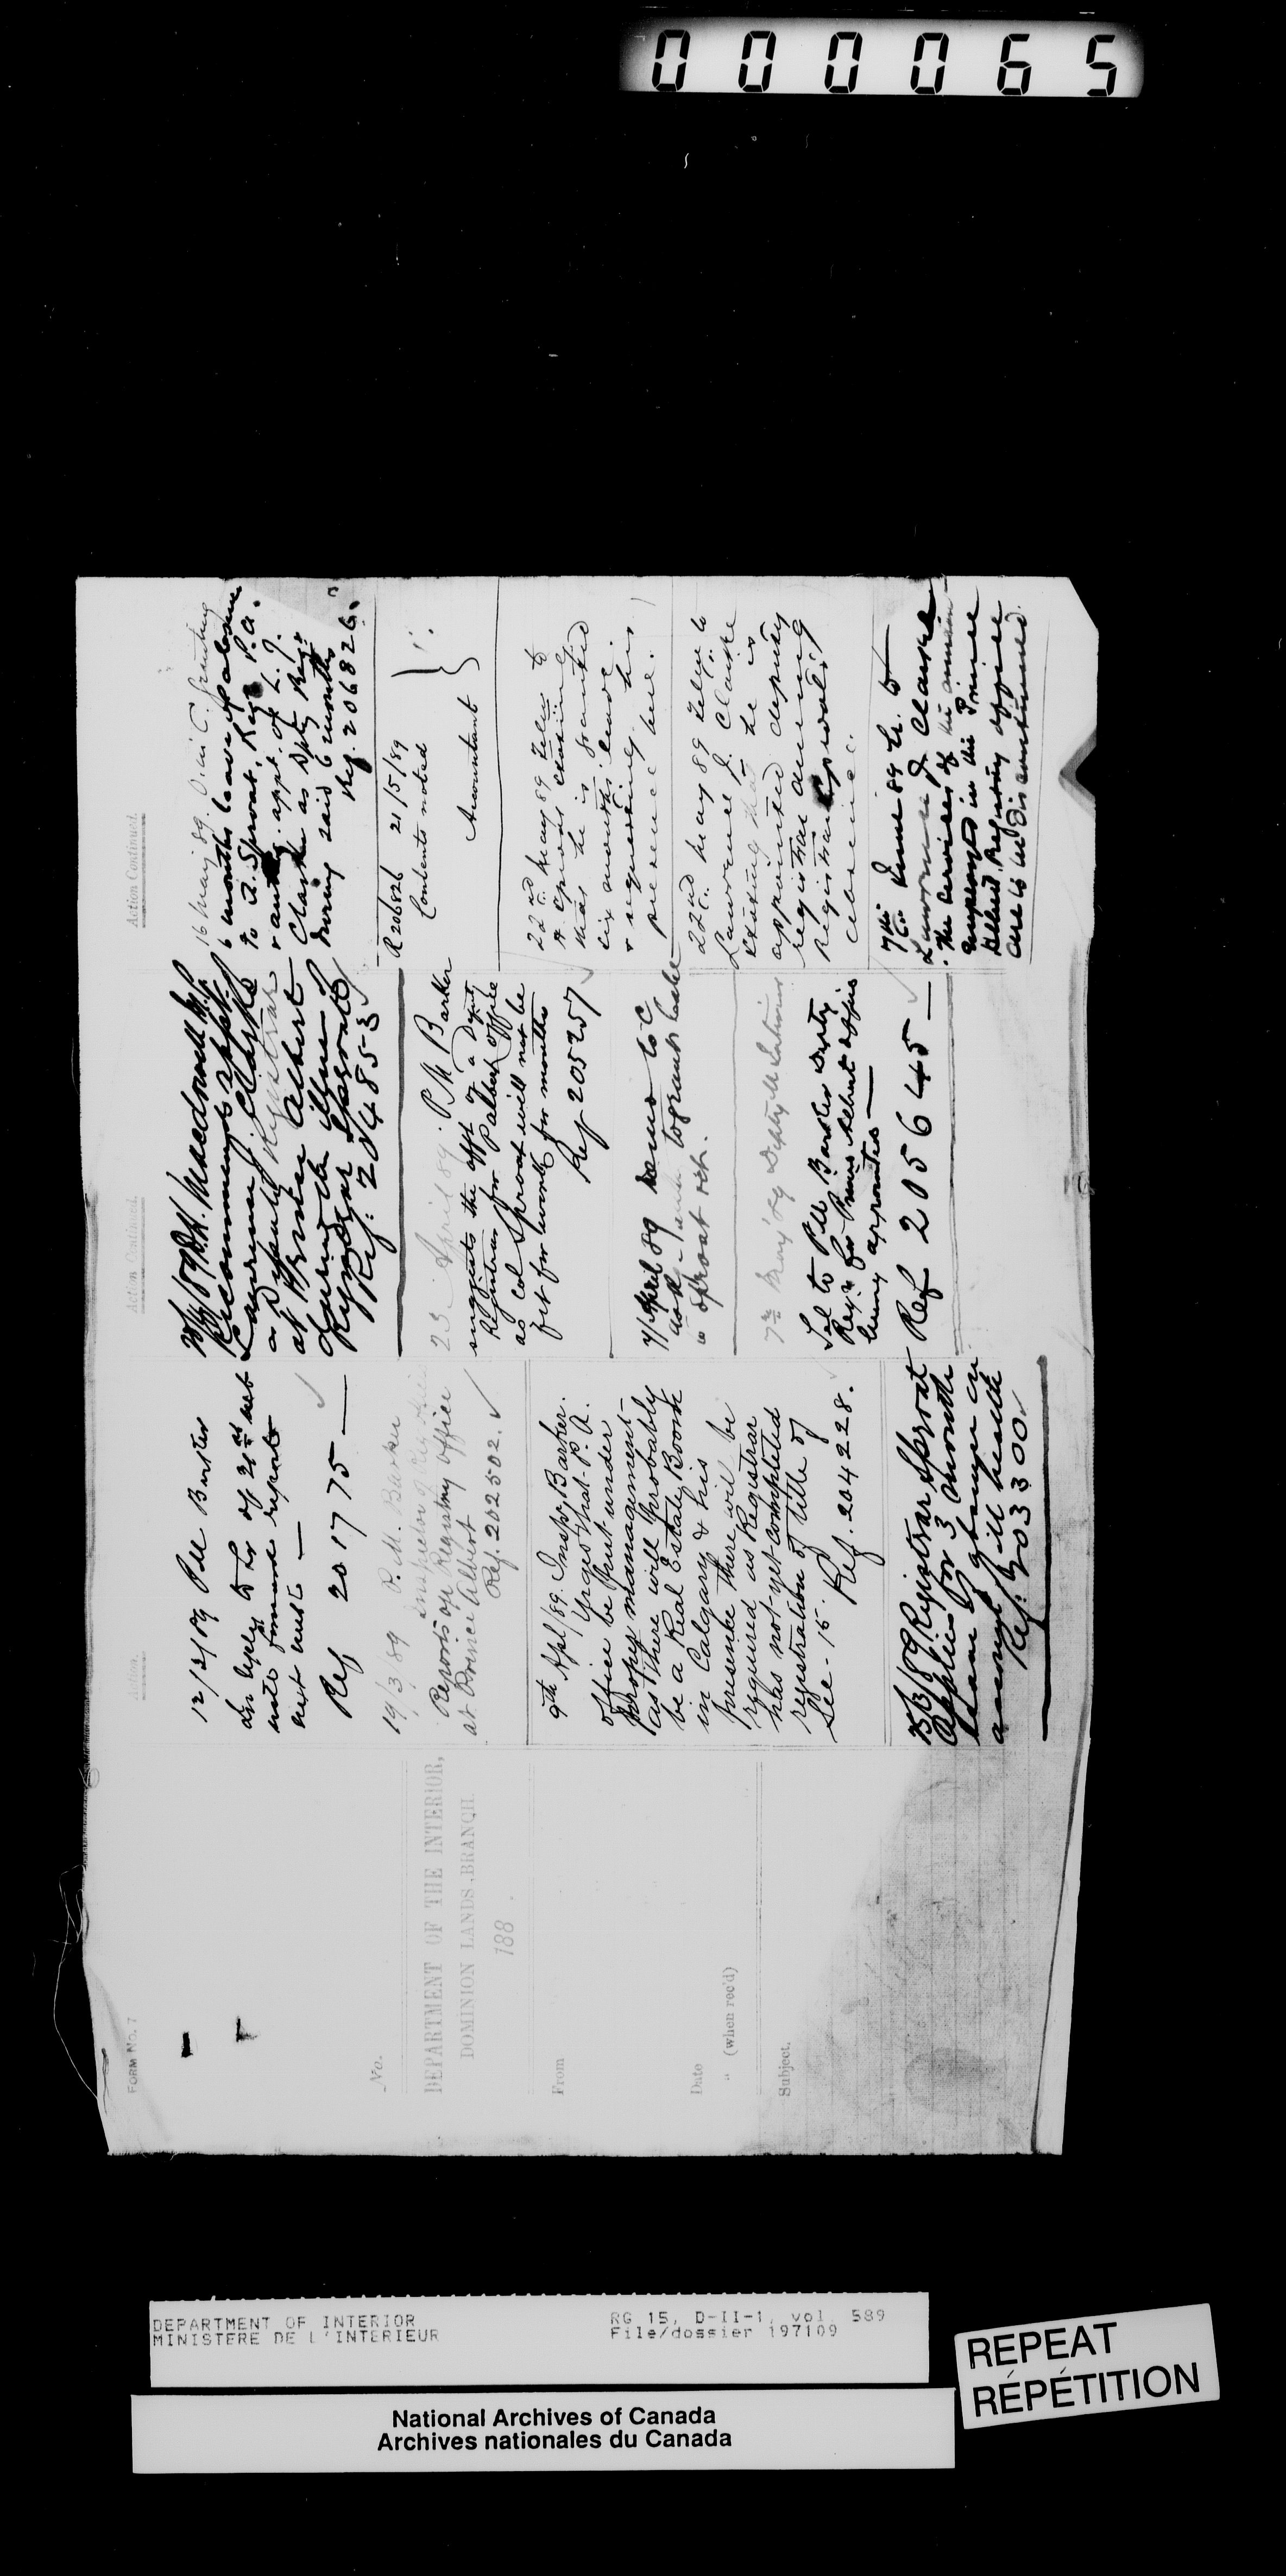 000065
FORM No. 7
No.
DEPARTMENT OF THE INTERIOR,
DOMINION LANDS BRANCH.
188 .
From
Date
" (when rec'd)
Subject.
Action.
12/2/89 P M Barker
in reply to Lr of 21st
will forward report
next week —
Ref 201775 —
19/3/89 P. M. Barker
Inspector of Registries
Reports on Registry Office
at Prince Albert
Ref. 202502.
9th Apl/89. Inspr Barker.
Urges that P. A.
office be put under
proper management
as there will probably
be a Real Estate Boom
in Calgary & his
presence there will be
required as Registrar
has not yet completed
registration of title of
Sec - 15.
Ref. 204228.
25/3/89 Registrar Sproat
applies for 3 months
leave of absence on
account of ill health
Ref. 203300
Action Continued.
D. H. Macdowall M.P.
Recommends appt of
Laurence J. Clarke
as Deputy Registrar
at Prince Albert
during the illness of
Registrar Sproat
Ref: 204853
23 April 89. P M Barker
suggests the appt of a Deputy
Registrar for P Albert office
as Col Sproat will not be
fit for work for months
Ref 205257
April 89 Memo to C
to grant leave
to Sproat
7th May '89 Depty M Interior
Tel to P M Barker Depty
Regr for Prince Albert office
being appointed —
Ref 205645 —
Action Continued.
16 May 89. O. in C. granting
6 months leave of absence
to A. Sproat, Regr P.A.
& auth. appt. of L. J.
Clarke as Dpty Regr
during said 6 months
Ref. 206826.
R 206826 21/5/89
Contents noted
Accountant
22nd May 89 Telem to
A Sproat stating
that he is granted
six months leave.
& requesting his
presence here.
22nd May 89 Telem to
Lawrence J. Clarke
stating that he is
appointed deputy
registrar during
registrar Sproat's
absence.
7th June 89 Lr. to
Lawrence J Clarke
the services of the
employed in the Prince
Albert Registry office
are to be discontinued.
DEPARTMENT OF INTERIOR
MINISTERE DE L'INTERIEUR
RG 15, D-II-1, vol. 589
File/dossier 197109
REPEAT
RÉPÉTITION
National Archives of Canada
Archives nationales du Canada